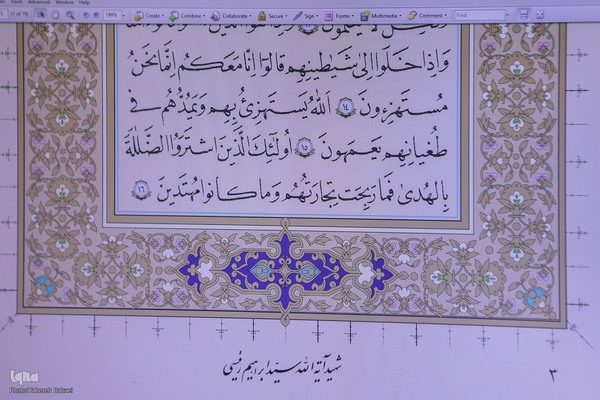 Tools Advanced Window Help
(1 of 19) 199% Create Combine Collaborate Secure Sign Forms Multimedia Comment Find
وَإِذَا خَلَوْا إِلَىٰ شَيَاطِينِهِمْ قَالُوا إِنَّا مَعَكُمْ إِنَّمَا نَحْنُ
مُسْتَهْزِءُونَ ١٤ اَللّٰهُ يَسْتَهْزِئُ بِهِمْ وَيَمُدُّهُمْ فِي
طُغْيَانِهِمْ يَعْمَهُونَ ١٥ أُولَٰئِكَ الَّذِينَ اشْتَرَوُا الضَّلَالَةَ
بِالْهُدَىٰ فَمَا رَبِحَتْ تِجَارَتُهُمْ وَمَا كَانُوا مُهْتَدِينَ ١٦
شهید آیة الله سید ابراهیم رئیسی
٣
Iqna